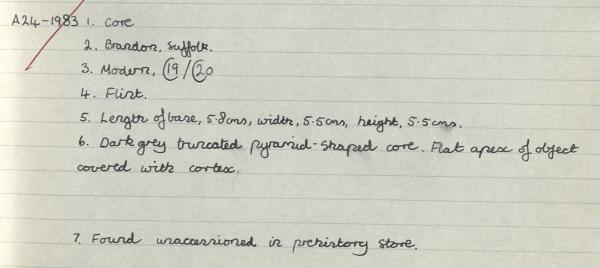 A24-1983 1. Core
2. Brandon, Suffolk.
3. Modern, 19/20
4. Flint.
5. Length of base, 5.8cms, width, 5.5cms, height, 5.5cms.
6. Dark grey truncated pyramid-shaped core. Flat apex of object
covered with cortex.
7. Found unaccessioned in prehistory store.